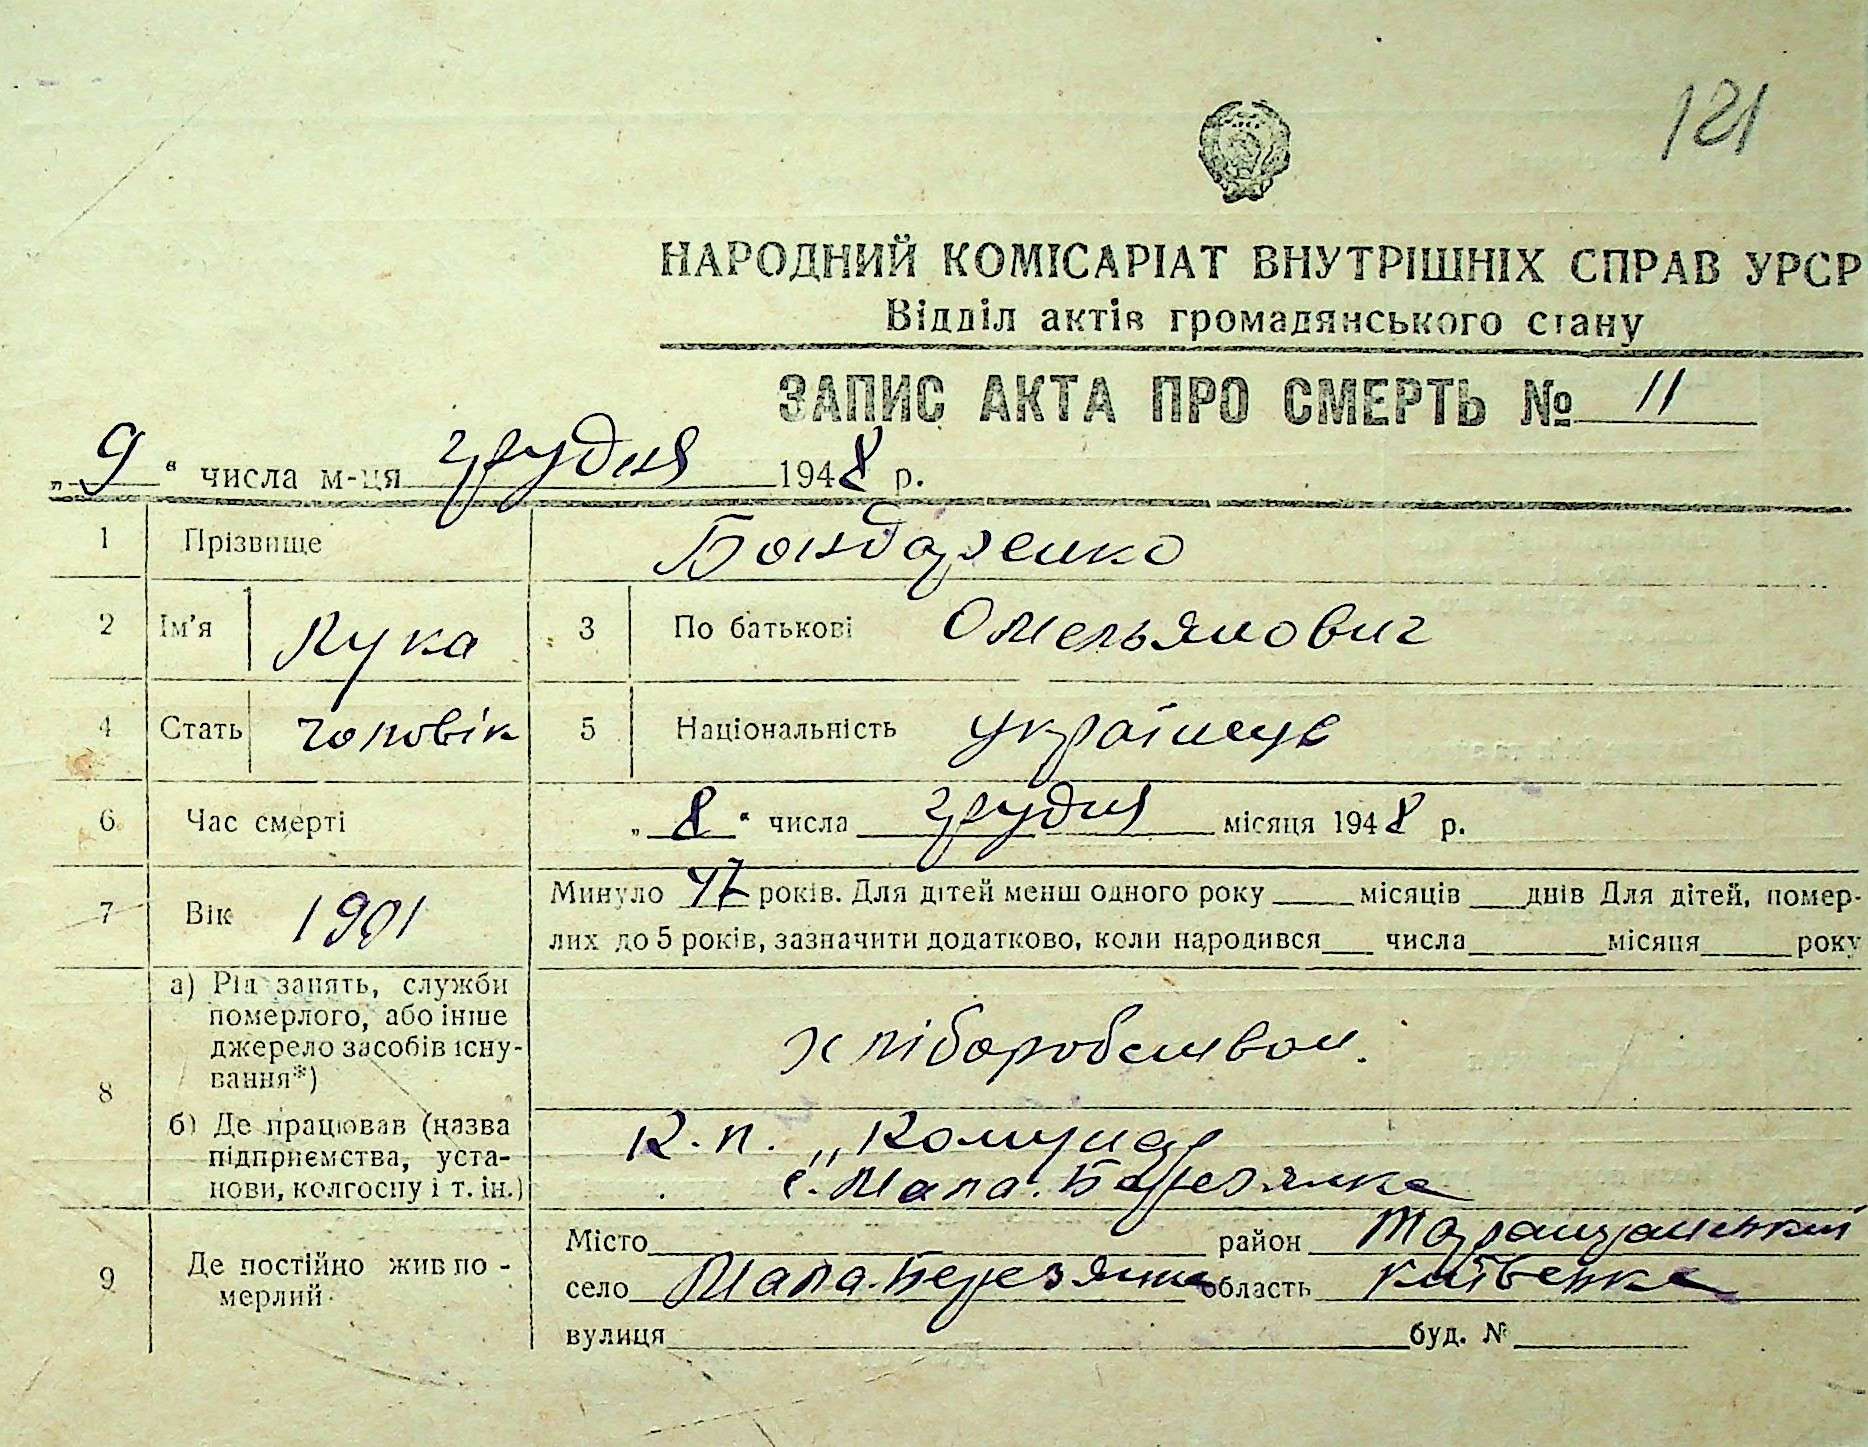 121
НАРОДНИЙ КОМІСАРІАТ ВНУТРІШНІХ СПРАВ УРСР
Відділ актів громадянського стану
ЗАПИС АКТА ПРО СМЕРТЬ № 11
„ 9 “ числа м-ця грудня 1948 р.
1 Прізвище Бондаренко
2 Ім'я Лука 3 По батькові Омельянович
4 Стать чоловік 5 Національність українець
6 Час смерті „ 8 “ числа грудня місяця 1948 р.
7 Вік 1901 Минуло 47 років. Для дітей менш одного року ____ місяців ____ днів Для дітей, помер-
лих до 5 років, зазначити додатково, коли народився ____ числа ____ місяця ____ року
8 а) Рід занять, служби
померлого, або інше
джерело засобів існу-
вання*)
хліборобством.
б) Де працював (назва
підприємства, уста-
нови, колгоспу і т. ін.)
к.п. „Комунар
с. Мала. Березянка
9 Де постійно жив по-
мерлий
Місто ____ район Таращанський
село Мала-Березянка область Київська
вулиця ____ буд. № ____